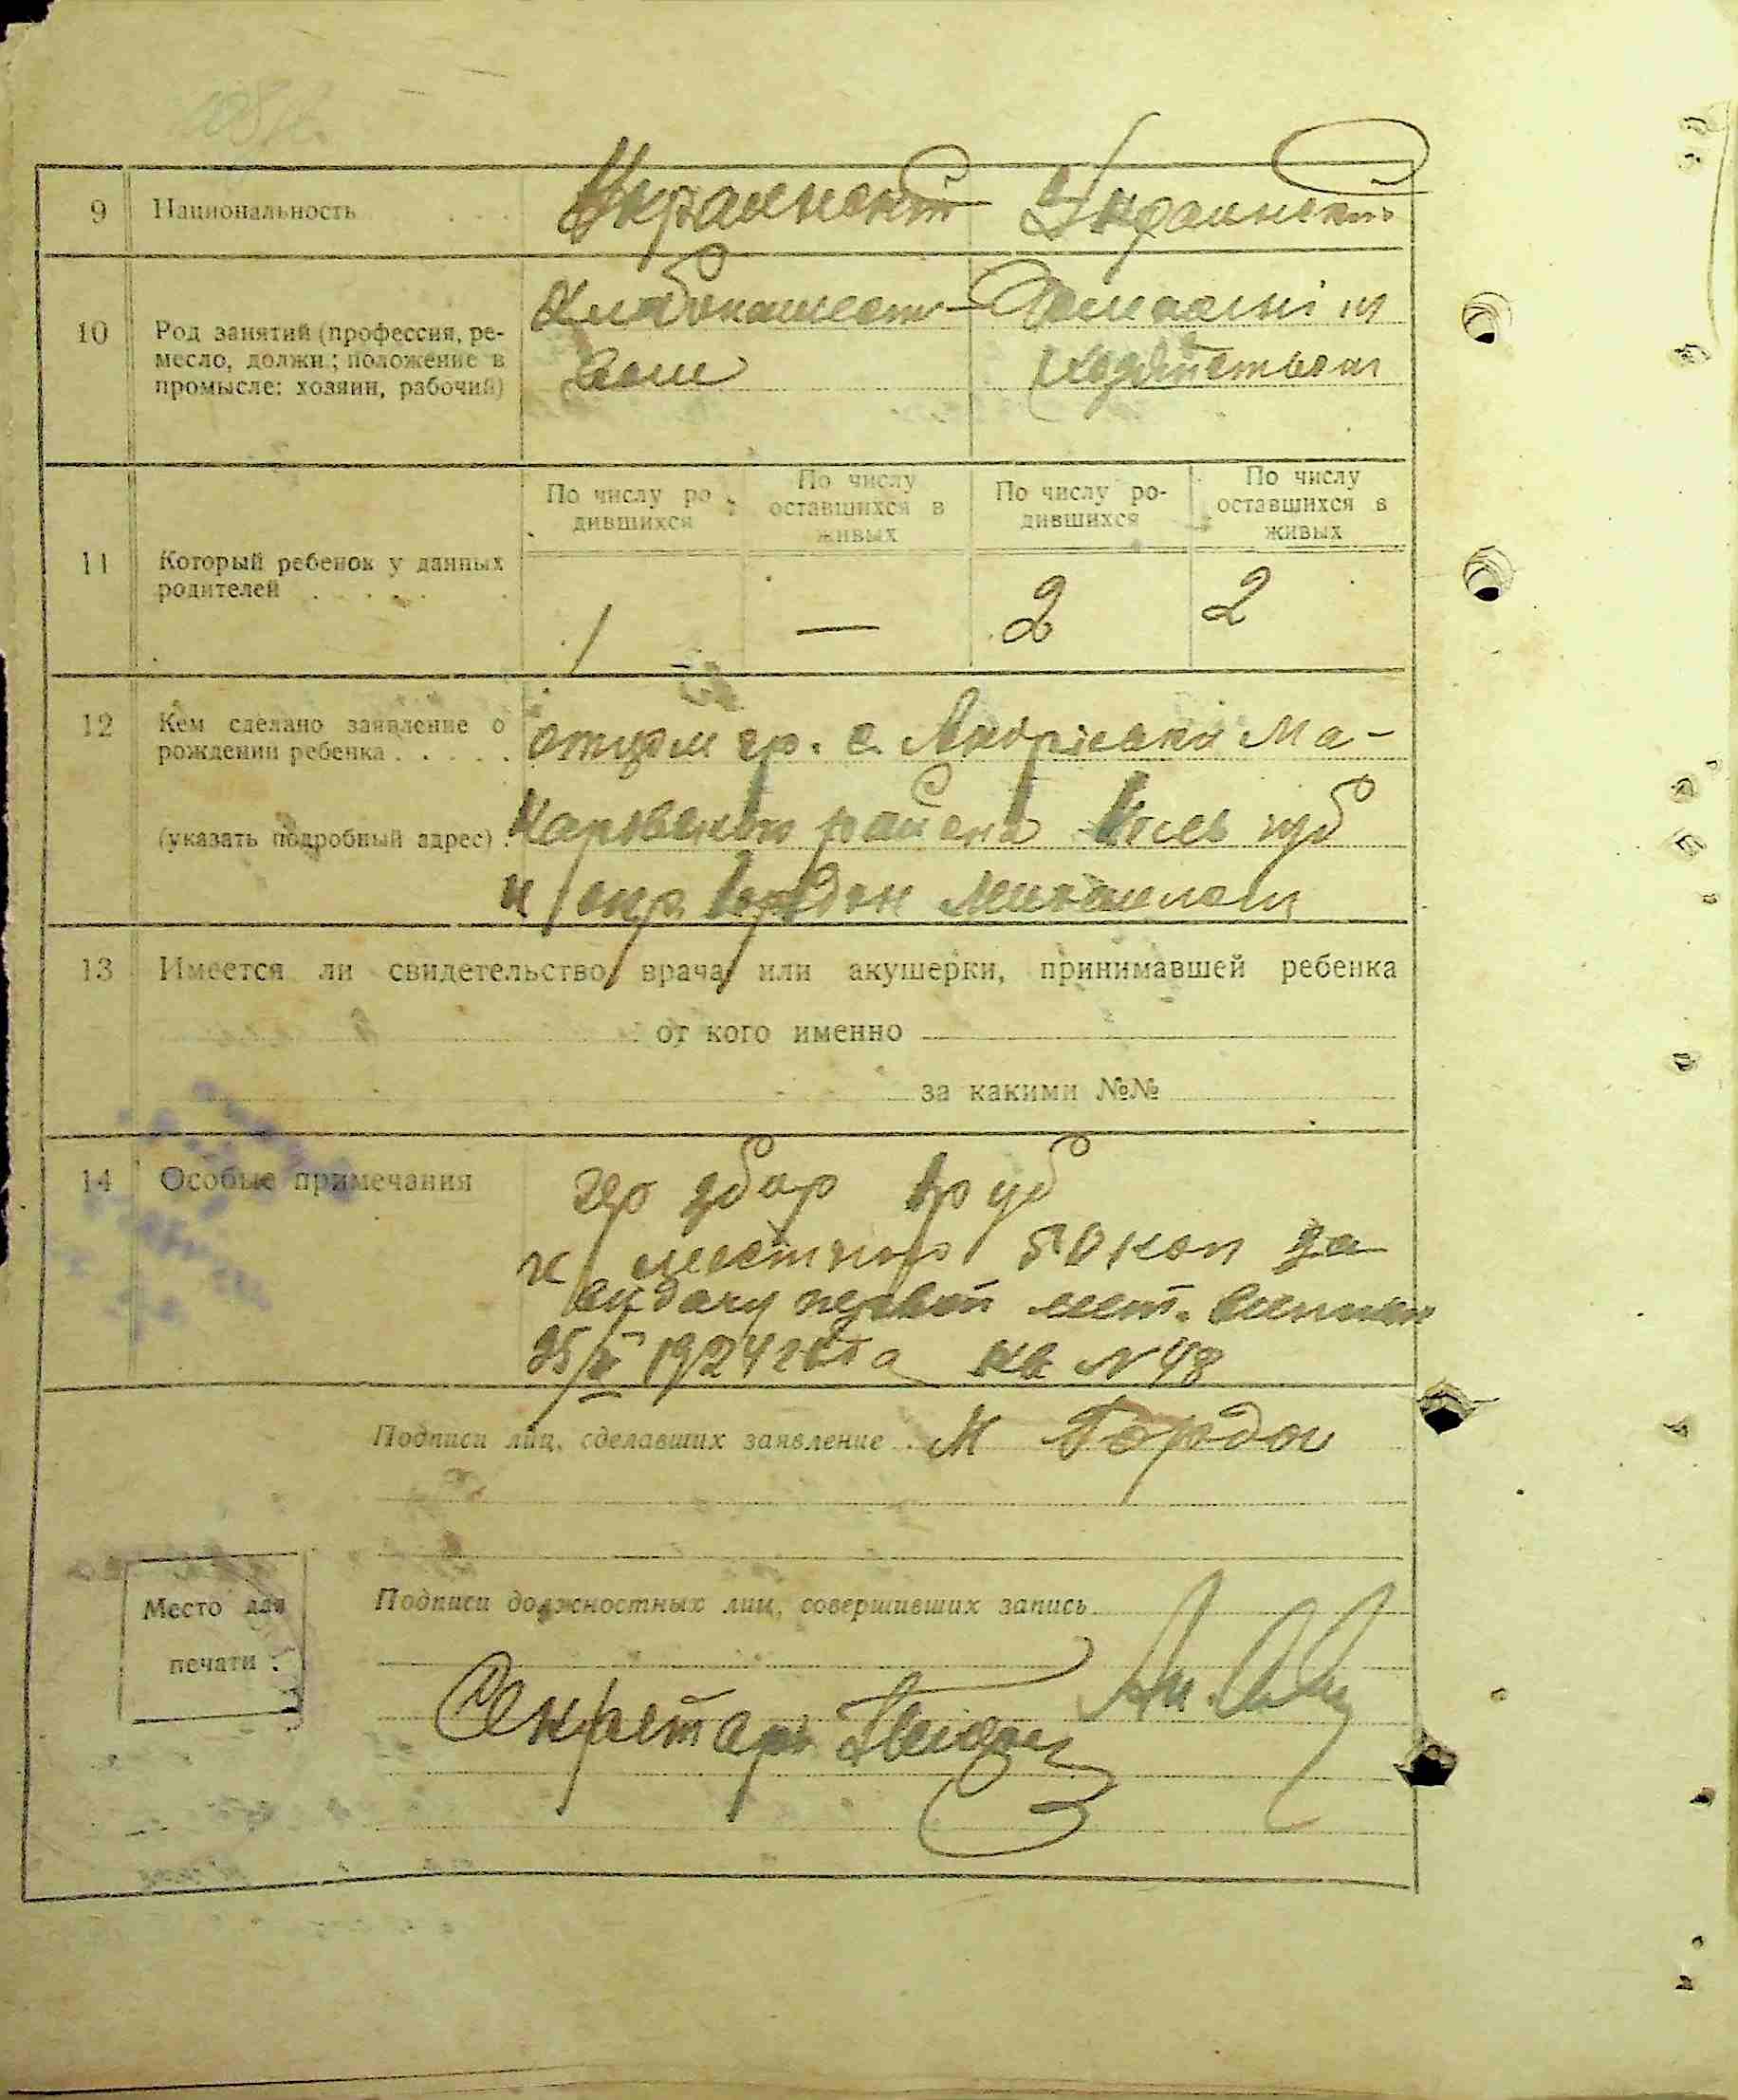 9 Национальность Украинской Украинской
10 Род занятий (профессия, ре-
месло, должн; положение в
промысле: хозяин, рабочий)
Хлебопашест-
вом
Домашнім
Хозяйством
11 Который ребенок у данных
родителей
По числу ро
дившихся
По числу
оставшихся в
живых
По числу ро-
дившихся
По числу
оставшихся в
живых
1 — 2 2
12 Кем сделано заявление о
рождении ребенка
(указать подробный адрес)
отцом гр. с. Андріевки Ма-
карвского района Киев губ
Гордон Михаилом
13 Имеется ли свидетельство врача или акушерки, принимавшей ребенка
от кого именно
за какими №№
14 Особые примечания
гер збор руб
и местного 50 коп за
видачу первой
25/ 1924 года кв N 48
Подписи лиц, сделавших заявление М Гордон
Подписи должностных лиц, совершивших запись
Место для
печати
Секретарь